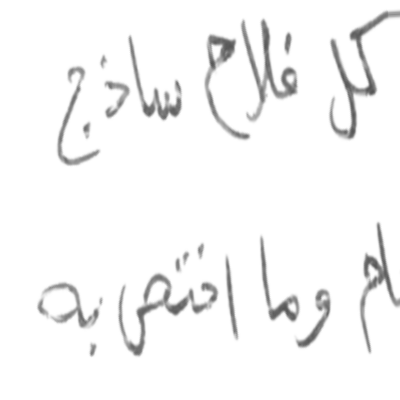 كل فلاح ساذج
وما اختص به